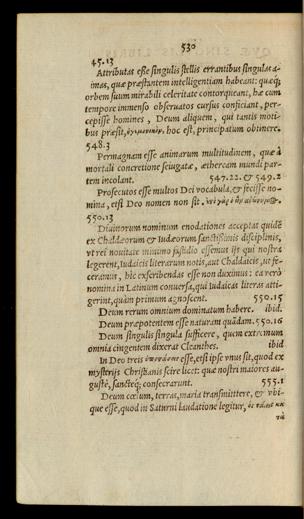 530
45.13
Attributas esse singulis stellis errantibus singulas a-
imas, quæ præstantem intelligentiam habeant: quæq;
orbem suum mirabili celeritate contorqueant, hæ cum
tempore immenso obseruatos cursus conficiant, per-
cepisse homines, Deum aliquem, qui tantis moti-
bus præsit, hoc est, principatum obtinere.
548.3
Permagnam esse animarum multitudinem, quæ à
mortali concretione seiugatæ, ætheream mundi par-
tem incolant. 547.22. & 549.2
Prosecutos esse multos Dei vocabula, & fecisse no-
mina, etsi Deo nomen non sit.
550.13
Diuinorum nominum enodationes acceptas quidē
ex Chaldæorum & Iudæorum sanctissimis disciplinis,
vt rei nouitate minimo fastidio essemus ijs qui nostra
legerent, Iudaicis literarum notis, aut Chaldaicis, vt fe-
ceramus, hic exscribendas esse non duximus: ea verò
nomina in Latinum conuersa, qui Iudaicas literas atti-
gerint, quàm primum agnoscent. 550.15
Deum rerum omnium dominatum habere. ibid.
Deum præpotentem esse naturam quãdam. 550.16
Deum singulis singula sufficere, quem extremum
omnia cingentem dixerat Cleanthes. ibid
In Deo treis esse, etsi ipse vnus sit, quod ex
mysterijs Christianis scire licet: quæ nostri maiores au-
gustè, sanctéq; consecrarunt. 555.1
Deum cœlum, terras, maria transmittere, & vbi-
que esse, quod in Saturni laudatione legitur,